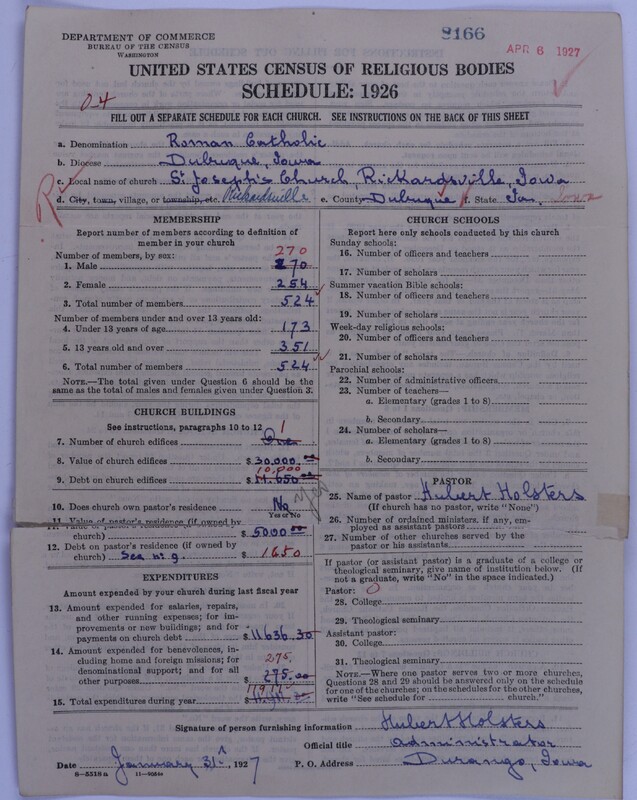 8166
APR 6 1927
DEPARTMENT OF COMMERCE
BUREAU OF THE CENSUS
WASHINGTON
UNITED STATES CENSUS OF RELIGIOUS BODIES
SCHEDULE: 1926
04
FILL OUT A SEPARATE SCHEDULE FOR EACH CHURCH. SEE INSTRUCTIONS ON THE BACK OF THIS SHEET
a. Denomination Roman Catholic
b. Diocese Dubuque, Iowa
c. Local name of church St Joseph's Church, Rickardsville, Iowa
R d. City, town, village, or township, etc. Rickardsville e. County Dubuque f. State Ia. Iowa
MEMBERSHIP
Report number of members according to definition of member in your church
Number of members, by sex:
270
1. Male 270
2. Female 254
3. Total number of members 524
Number of members under and over 13 years old:
4. Under 13 years of age 173
5. 13 years old and over 351
6. Total number of members 524
NOTE.—The total given under Question 6 should be
same as the total of males and females given under Question 3.
CHURCH BUILDINGS
See instructions, paragraphs 10 to 12
1
7. Number of church edifices One
8. Value of church edifices $ 30,000.00
10,000
9. Debt on church edifices $ 11,650
10. Does church own pastor's residence No Yes
Yes or No
11. Value of pastor's residence (if owned by
church) $ 5000.00
12. Debt on pastor's residence (if owned by
church) See nº 9. $ 1650
EXPENDITURES
Amount expended by your church during last fiscal year
13. Amount expended for salaries, repairs,
and other running expenses; for im-
provements or new buildings; and for
payments on church debt $ 11636.30
14. Amount expended for benevolences,
including home and foreign missions; for
denominational support; and for all
other purposes $ 275.00
275.
15. Total expenditures during year $
CHURCH SCHOOLS
Report here only schools conducted by this church
Sunday schools:
16. Number of officers and teachers
17. Number of scholars
Summer vacation Bible schools:
18. Number of officers and teachers
19. Number of scholars
Week-day religious schools:
20. Number of officers and teachers
21. Number of scholars
Parochial schools:
22. Number of administrative officers
23. Number of teachers—
a. Elementary (grades 1 to 8)
b. Secondary
24. Number of scholars—
a. Elementary (grades 1 to 8)
b. Secondary
PASTOR
25. Name of pastor Hubert Holsters
(If church has no pastor, write "None")
26. Number of ordained ministers, if any, em-
ployed as assistant pastors
27. Number of other churches served by the
pastor or his assistants
If pastor (or assistant pastor) is a graduate of a college or
theological seminary, give name of institution below. (If
not a graduate, write "No" in the space indicated.)
Pastor: 0
28. College
29. Theological seminary
Assistant pastor:
30. College
31. Theological seminary
NOTE.—Where one pastor serves two or more churches,
Questions 28 and 29 should be answered only on the schedule
for one of the churches; on the schedules for the other churches,
write "See schedule for church."
Signature of person furnishing information Hubert Holsters
Official title administrator
Date January 31st, 1927 P. O. Address Durango, Iowa
8—5518a 11—